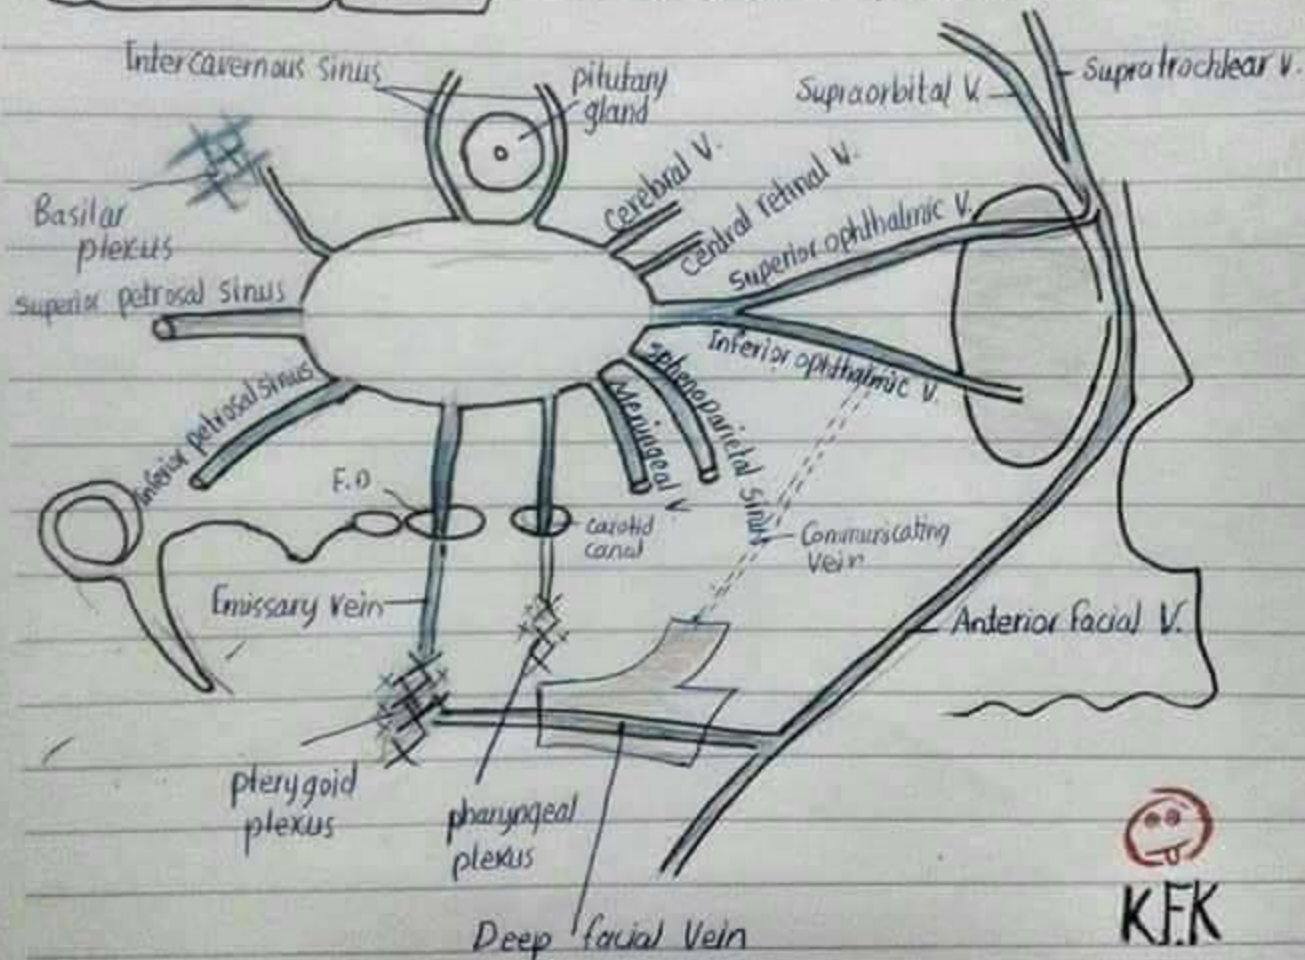 Intercavernous sinus
pitutary
gland
Supraorbital V.
Supratrochlear V.
Basilar
plexus
Cerebral V.
Central retinal V.
Superior ophthalmic V.
superior petrosal sinus
Inferior ophthalmic V.
inferior petrosal sinus
Meningeal V.
sphenoparietal sinus
F.O
carotid
canal
Communicating
Vein
Emissary Vein
Anterior facial V.
pterygoid
plexus
pharyngeal
plexus
Deep facial Vein
K.F.K